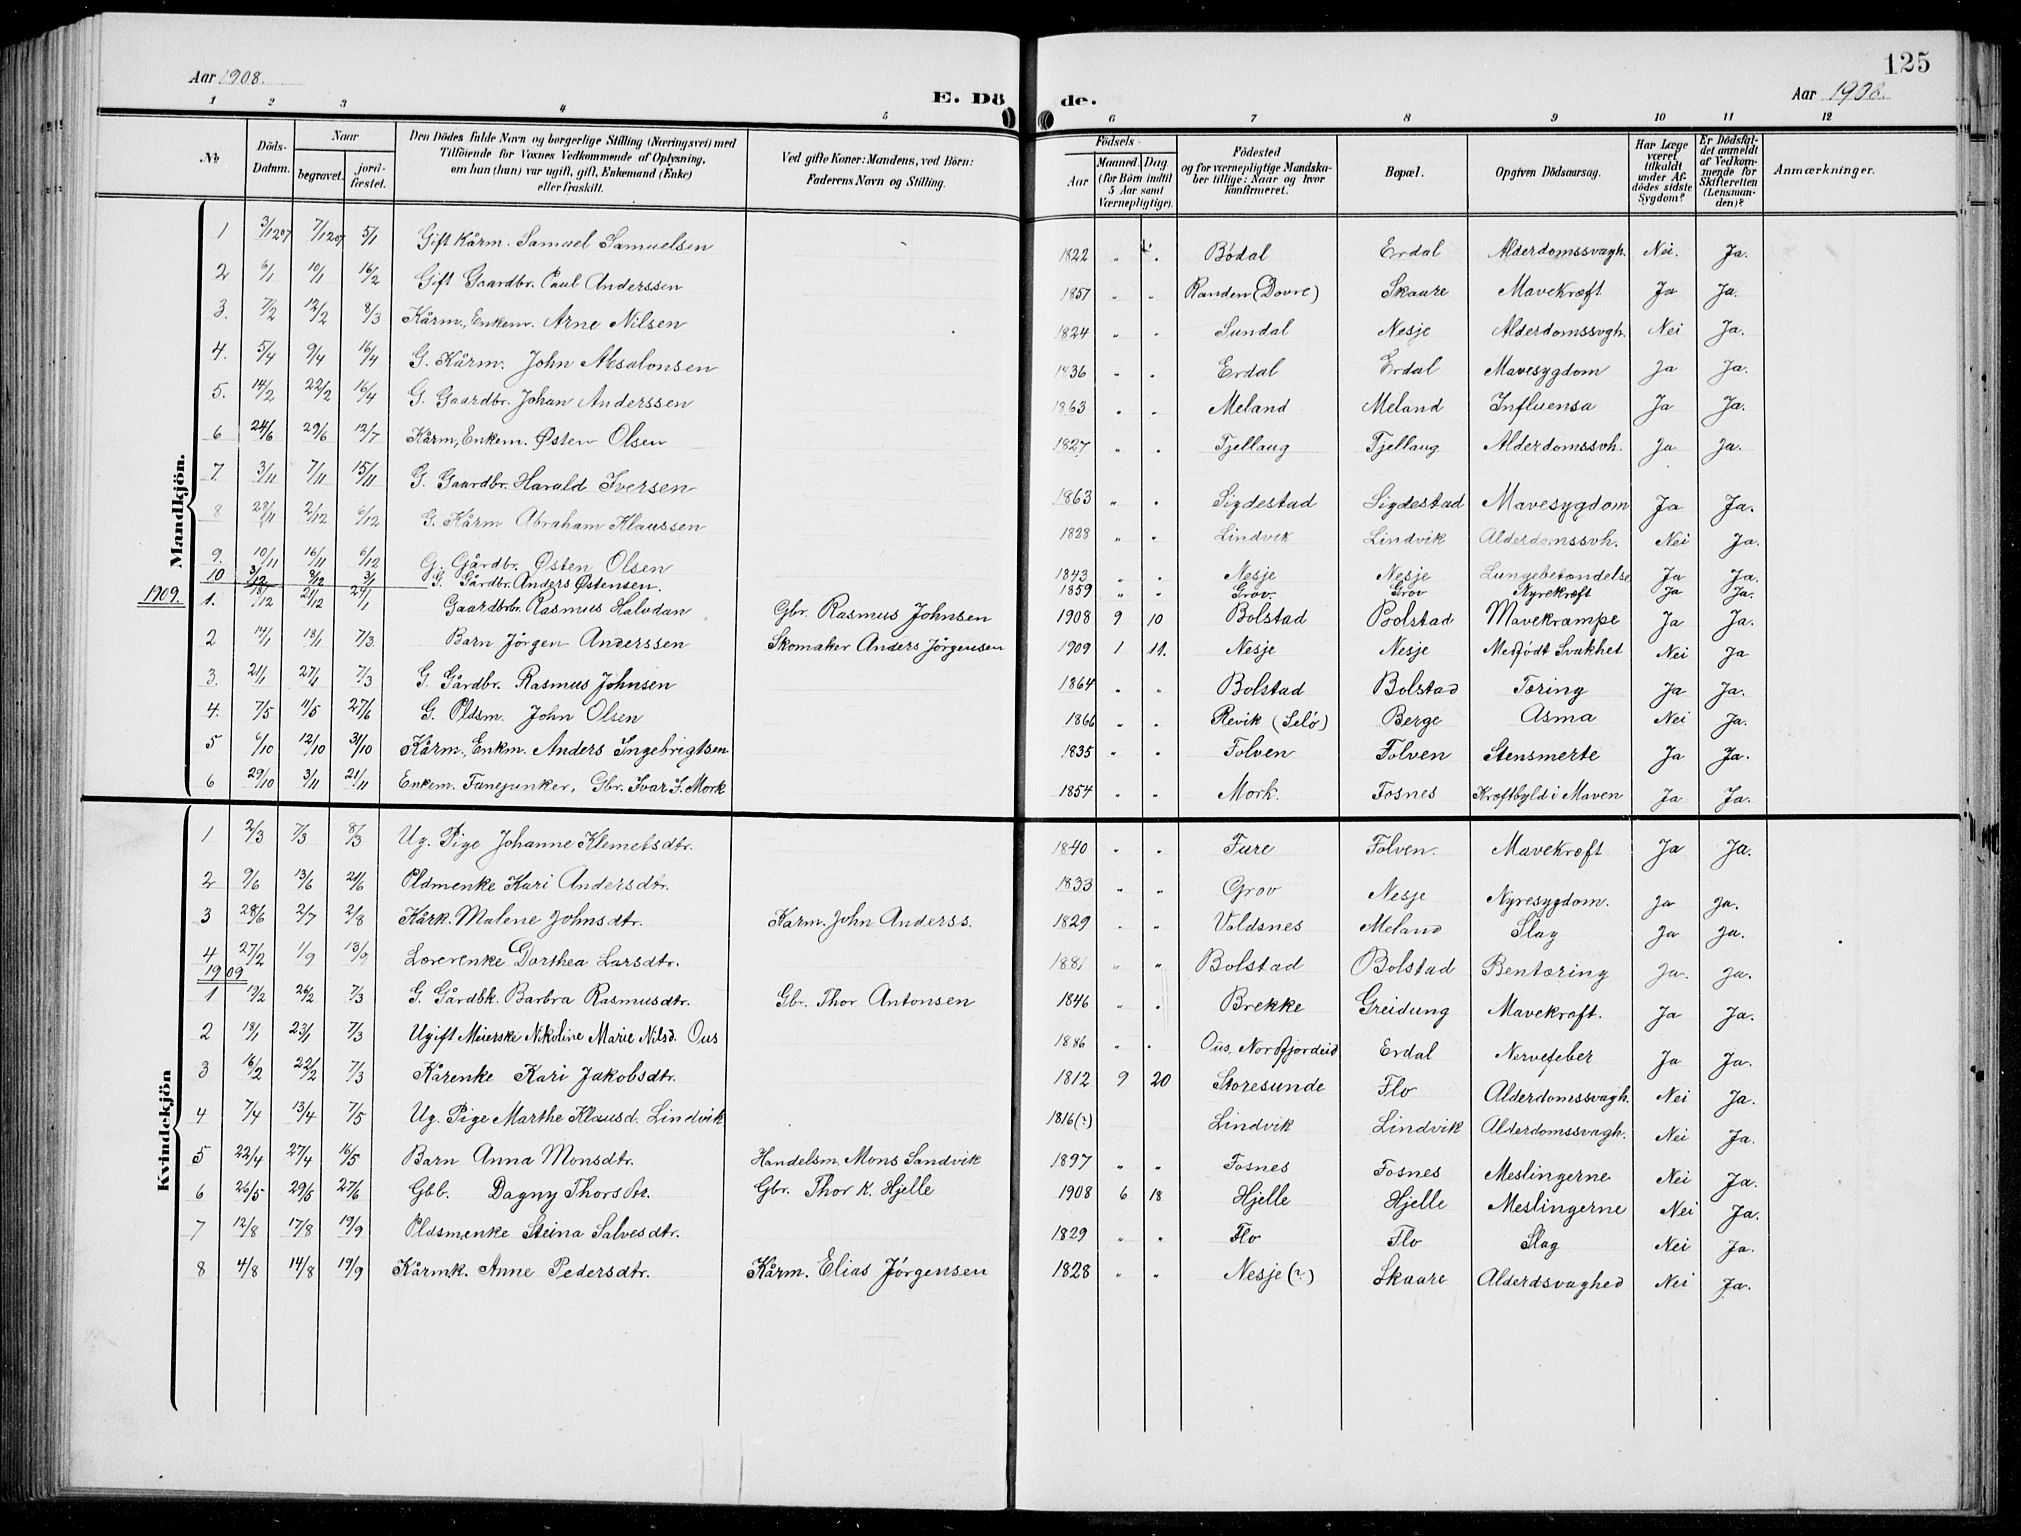 125
Aar 1908.
E. Dö de.
Aar 1908.
1 2 3 4 5 6 7 8 9 10 11 12
No
Döds-Datum.
Naar
begravet.
jord-fæstet.
Den Dödes fulde Navn og borgerlige Stilling (Næringsvei) med
Tilföiende for Voxnes Vedkommende af Oplysning,
om han (hun) var ugift, gift, Enkemand (Enke)
eller fraskilt.
Ved gifte Koner: Mandens, ved Börn:
Faderens Navn og Stilling.
Födsels-
Aar
Maaned Dag
(for Börn indtil
5 Aar samt
Værnepligtige).
Födested
og for værnepligtige Mandska-
ber tillige: Naar og hvor
konfirmeret.
Bopæl.
Opgiven Dödsaarsag.
Har Læge
været
tilkaldt
under Af-
dödes sidste
Sygdom?
Er Dödsfal-
det anmeldt
af Vedkom-
mende for
Skifteretten
(Lensman-
den)?
Anmærkninger.
Mandkjön.
1 3/12 07 7/12 07 5/1 Gift Kårm. Samuel Samuelsen 1822 " . Bødal Erdal Alderdomssvagh. Nei. Ja.
2 6/1 10/1 16/2 Gift Gaardbr. Paul Anderssen 1857 " " Randen (Dovre) Skaare Mavekræft Ja Ja.
3. 7/2 12/2 8/3 Kårm., Enkem. Arne Nilsen 1824 " . Sundal Nesje Alderdomssvgh. Nei Ja.
4. 5/4 9/4 16/4 G. Kårm. John Absalonsen 1836 " . Erdal Erdal Mavesygdom Ja Ja.
5. 14/2 22/2 16/4 G. Gaardbr. Johan Anderssen 1863 " . Meland Meland Influensa Ja Ja.
6 24/6 29/6 12/7 Kårm, Enkem. Østen Olsen 1827 " . Tjellaug Tjellaug Alderdomssvh. Ja Ja.
7 3/11 7/11 15/11 G. Gaardbr. Harald Iversen 1863 " . Sigdestad Sigdestad Mavesygdom Ja Ja.
8 28/11 2/12 6/12 G. Kårm Abraham Klaussen 1828 " . Lindvik Lindvik Alderdomssvh. Nei Ja.
9. 10/11 16/11 6/12 G. Gårdbr. Østen Olsen 1843 " . Nesje Nesje Lungebetændelse Ja Ja.
10 3/12 8/12 3/1 G. Gårdbr. Anders Østensen. 1859 " " Grov. Grov Nyrekræft Ja Ja.
1909.
1. 18/12 21/12 24/1 Gaardbrb. Rasmus Halvdan Gbr. Rasmus Johnsen 1908 9 10 Bolstad Bolstad Mavekrampe Ja Ja.
2 14/1 18/1 7/3 Barn Jörgen Anderssen Skomaker Anders Jörgensen 1909 1 11. Nesje Nesje Medfödt Svakhet Nei Ja
3. 21/1 27/1 7/3 G. Gårdbr. Rasmus Johnsen 1864 " " Bolstad Bolstad Tæring Ja Ja.
4. 7/5 11/5 27/6 G. Pldsm. John Olsen 1866 " . Revik (Selö) Berge Asma Nei Ja.
5 6/10 12/10 31/10 Kårm., Enkm. Anders Ingebrigtsen 1835 " . Folven Folven Stensmerte Ja Ja.
6 29/10 3/11 21/11 Enkem. Fanejunker, Gbr. Ivar I. Mork 1854 " " Mork. Fosnes Kræftbyld i Maven Ja Ja.
Kvindekjön
1 2/3 7/3 8/3 Ug. Pige Johanne Klemetsdtr. 1840 " " Fure Folven. Mavekræft Ja Ja.
2 9/6 13/6 21/6 Pldmenke Kari Andersdtr. 1833 " " Grov Nesje Nyresygdom. Ja Ja.
3 28/6 2/7 2/8 Kårk. Malene Johnsdtr. Karm. John Anderss. 1829 " " Voldsnes Meland Slag Ja Ja.
4 27/2 1/9 13/9 Lærerenke Dorthea Larsdtr. 1881 " " Bolstad Bolstad Bentæring Ja. Ja.
1909
1 19/2 26/2 7/3 G. Gårdbk. Barbra Rasmusdtr. Gbr. Thor Antonsen 1846 " . Brekke Greidung Mavekræft. Ja Ja.
2 18/1 23/1 7/3 Ugift Meierske Nikoline Marie Nilsd. Ous 1886 " . Ous, Nordfjordeid Erdal Nervefeber Ja Ja.
3 16/2 22/2 7/3 Kårenke Kari Jakobsdtr. 1812 9 20 Storesunde Flo Alderdomssvagh. Nei Ja.
4 7/4 13/4 7/5 Ug. Pige Marthe Klausd. Lindvik 1816(?) Lindvik Lindvik Alderdomssvagh. Nei Ja.
5 22/4 27/4 16/5 Barn Anna Monsdtr. Handelsm. Mons Sandvik 1897 " " Fosnes Fosnes Meslingerne Nei Ja.
6 26/5 29/5 27/6 Gbb. Dagny Thorsdtr. Gbr. Thor K. Hjelle 1908 6 18 Hjelle Hjelle Meslingerne Nei Ja.
7 12/8 17/8 19/9 Pldsmenke Steina Salvesdtr. 1829 " " Flo Flo Slag Nei Ja.
8 4/8 14/8 19/9 Kårmk. Anne Pedersdtr. Kårm. Elias Jörgensen 1828 " " Nesje (?) Skaare Alderdsvaghed Nei Ja.